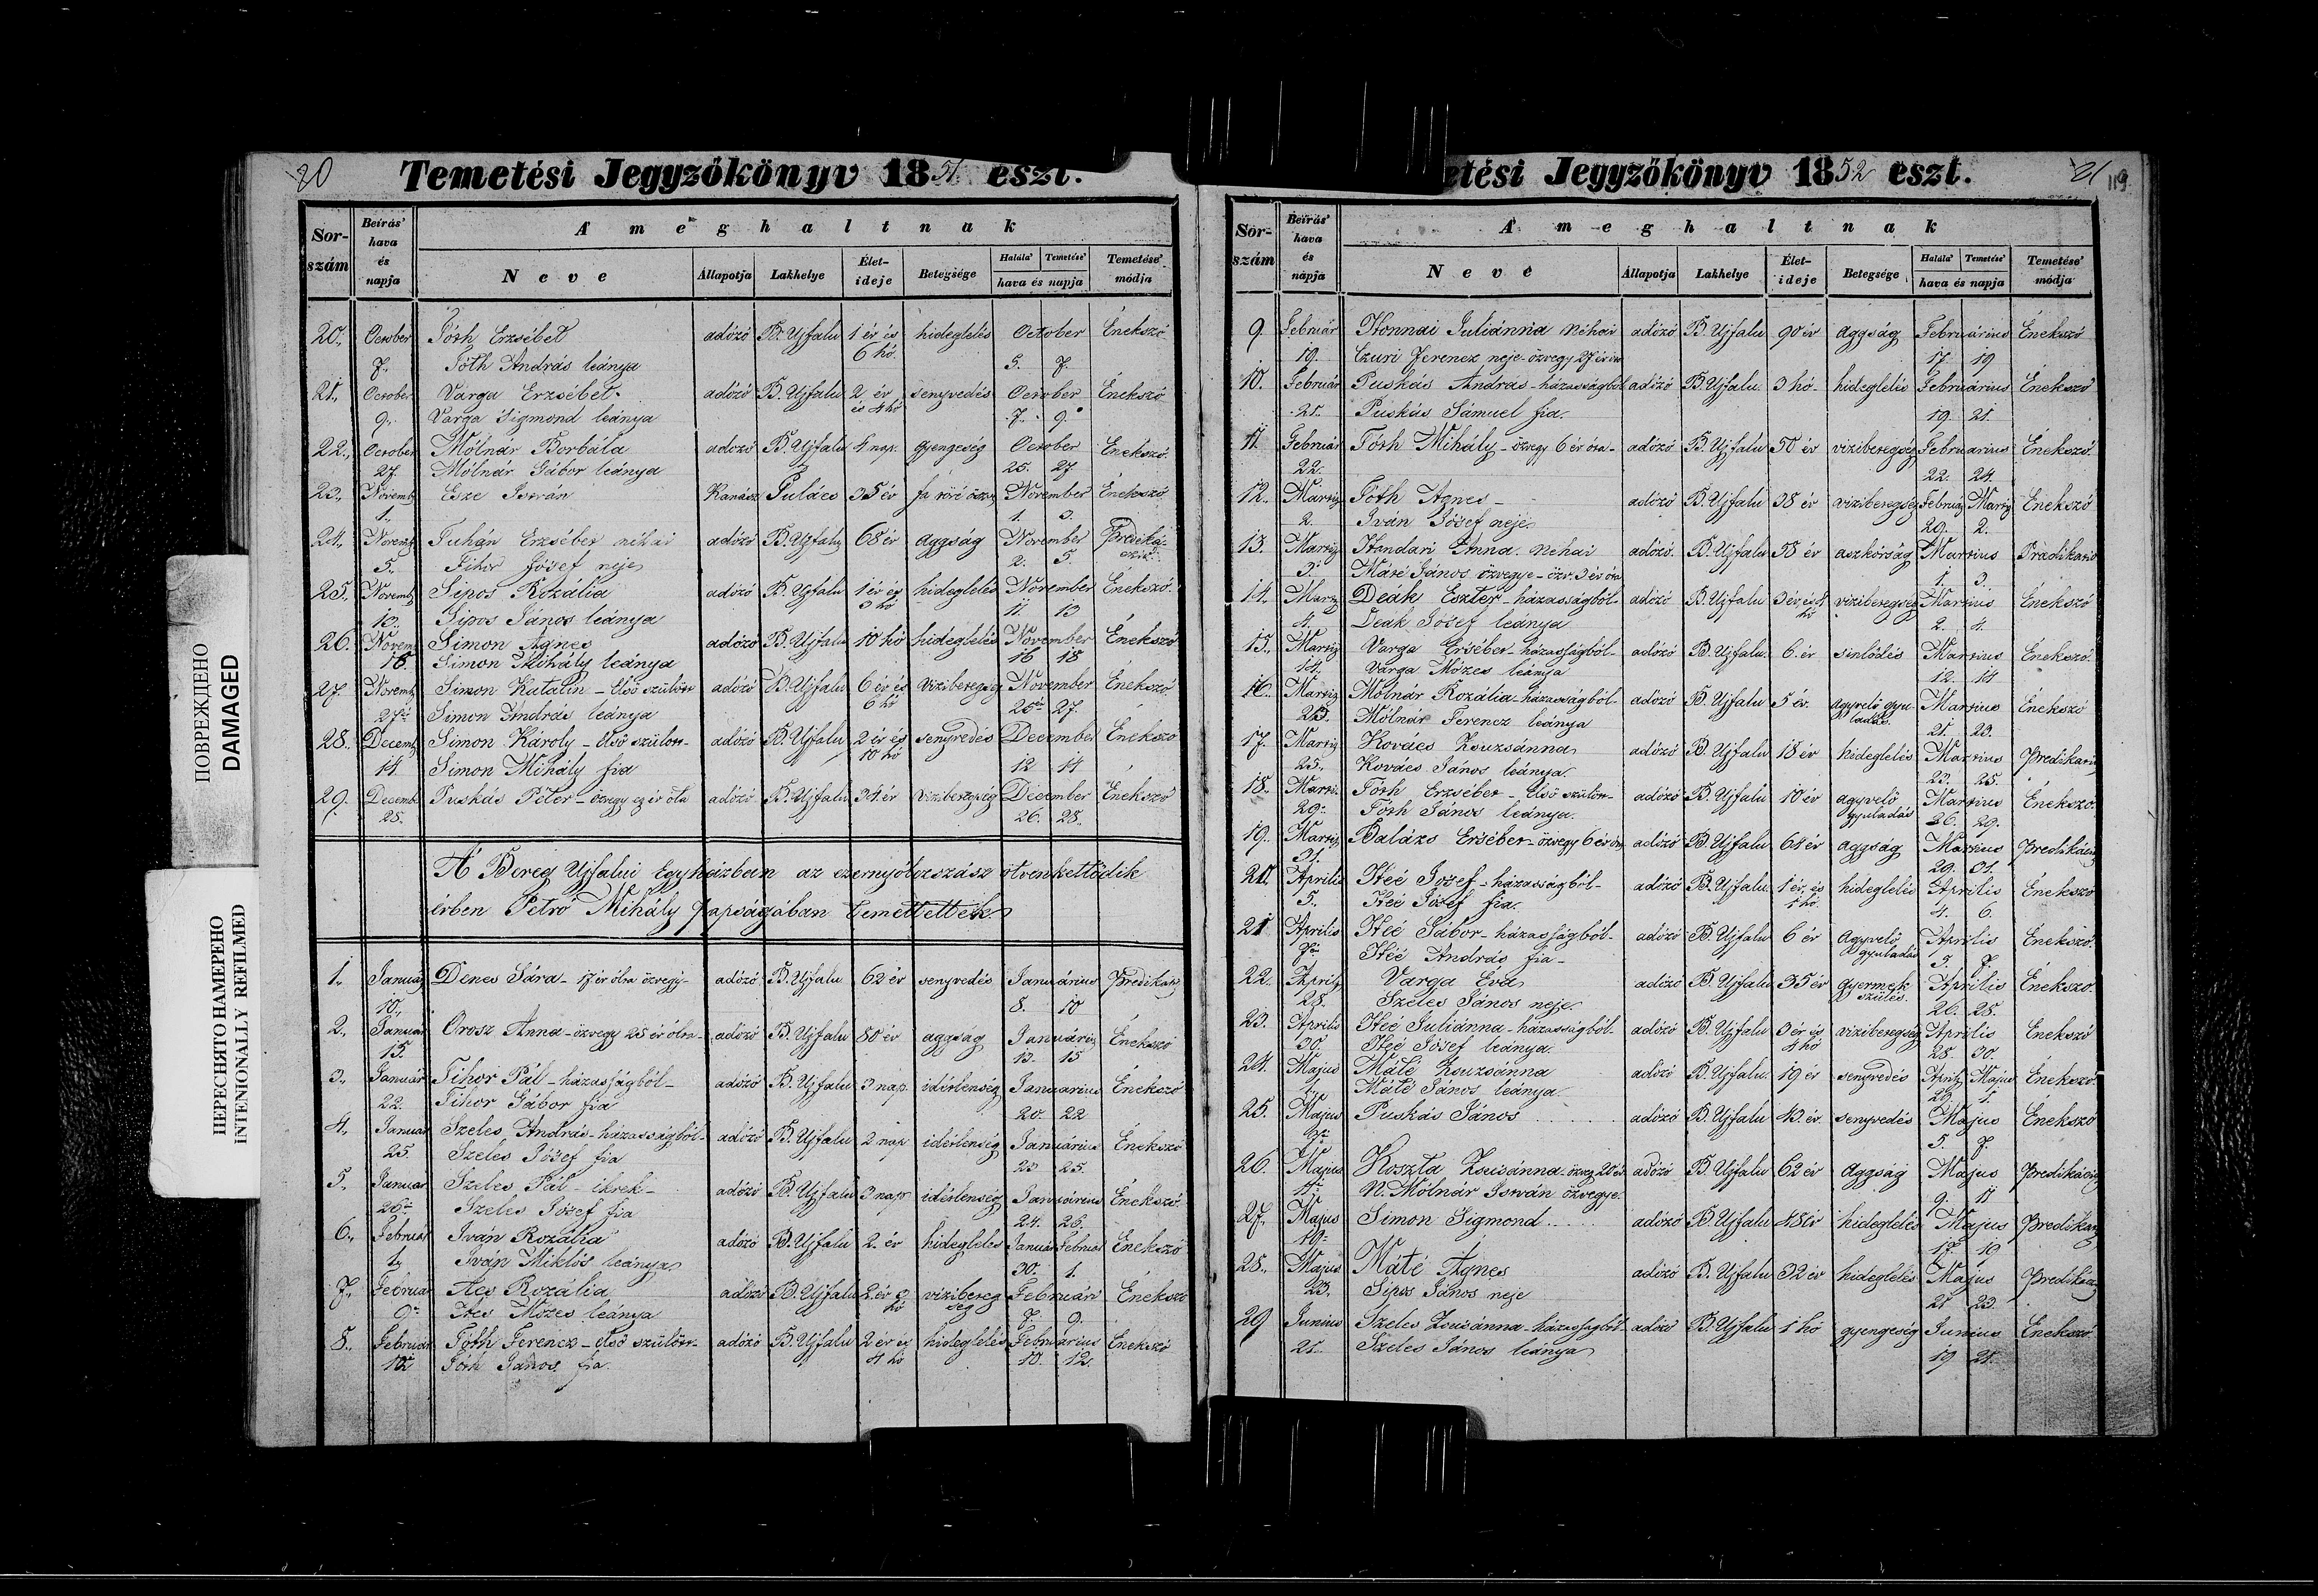 20
Temetési Jegyzőkönyv 1851 eszt.
Sor-szám
Beírás' hava és napja
A meghaltnak
Neve
Állapotja
Lakhelye
Élet-ideje
Betegsége
Halála' Temetése' hava és napja
Temetése' módja
20., October Tóth Erzsébet adózó B. Ujfalu 1 év és 6 hó hideglelés October Énekszó
7., Tóth András leánya 5. 7.
21., October Varga Erzsébet adózó B. Ujfalu 2 év és 4 hó senyvedés October Énekszó
9., Varga Sigmond leánya 7. 9.
22., October Mólnár Borbála adozó B. Ujfalu 4 nap. gyengeség October Énekszó
27. Mólnár Gábor leánya 25. 27
23., Novemb Esze István Kanász 35 év November Énekszó
1., 1. 3.
24., Novemb Erzsébet néhai adózó B. Ujfalu 68 év aggság November Prediká-czió
5., Tihor Jósef neje 2. 5.
25., Novemb Sipos Rozália adózó B. Ujfalu 1 év és 3 hó hideglelés November Énekszó
13., Sipos János leánya 11 13
26. Novem Simon Agnes adózó B. Ujfalu 10 hó hideglelés November Énekszó
18. Simon Mihály leánya 16 18
27 Novemb Simon Katalin - Első szülött adózó B. Ujfalu 6 év és 6 hó vizibetegség November Énekszó
27 Simon András leánya 25 27.
28., Decemb Simon Károly - Első szülött- adózó B. Ujfalu 2 év és 10 hó senyvedés December Énekszó
14. Simon Mihály fia 12 14
29. Decembe Puskás Péter - özvegy egy év óta adózó B. Ujfalu 34. év vizibetegség December Énekszó
28. 26. 28.
A Bereg Ujfalui Egyházban az ezernyólczszász ötvenkettődik
évben Petró Mihály papságában temettettek
1., Január Denes Sára - 17 év ólta özvegy- adózó B. Ujfalu 62 év senyvedés Januárius Predikatz
10., 8. 10
2., Január Orosz Anna - özvegy 25 év ólta- adózó B. Ujfalu 80 év aggság Januáriu Énekszó
15. 13. 15
3., Január Tihor Pál - házasságból- adózó B. Ujfalu 3 nap. idétlenség Januarius Énekszó
22. Tihor Gábor fia 20. 22
4., Január Szeles András - házasságból- adózó B. Ujfalu 2 nap idétlenség Januárius Énekszó
25. Szeles Jósef fia 23 25.
5., Január Szeles Pál - ikrek- adózó B. Ujfalu 3 nap idétlenség Januárius Énekszó.
26 Szeles Jósef fia 24. 26.
6., Február Iván Rozália adózó B. Ujfalu 2. év hideglelés Január Február Énekszó
1., Iván Miklós leánya 30. 1.
7., Február Acs Rozália adózó B. Ujfalu 2. év 9 hó vizibetegség Február Énekszó
9. Acs Mózes leánya 7. 9.
8., Február Tóth Ferencz - első szülött- adózó B. Ujfalu 2 év és 4 hó hideglelés Februárius Énekszó
12 Tóth János fia. 10. 12.
etési Jegyzőkönyv 1852 eszt.
21
119
Sor-szám
Beírás' hava és napja
A meghaltnak
Neve
Állapotja
Lakhelye
Élet-ideje
Betegsége
Halála' Temetése' hava és napja
Temetése' módja
9. Február Honnai Juliánna néhai adózó B. Ujfalu 90 év aggság Februárius Énekszó
19. Czuri Ferencz neje - özvegy 27 év óta 17 19
10. Február Puskás András - házasságból adózó B. Ujfalu. 3 hó- hideglelés Februárius Énekszó
21. Puskás Sámuel fia. 19. 21.
11. Február Tóth Mihály - özvegy 6 év óta- adózó B. Ujfalu 50 év vizibetegség Februarius Énekszó
22. 22. 24.
12. Martiz Tóth Agnes - adózó B. Ujfalu 38 év vizibetegség Február Martiz Énekszó
2. Iván Jósef neje 29. 2.
13. Martiz Anna. nehai adózó. B. Ujfalu 58 év aszkórság Martius
3. Máté János özvegye - özv. 3 év óta 1. 3.
14. Martiz Deák Eszter - házasságból- adózó B. Ujfalu vizibetegség Martius Énekszó
4. Deák Jósef leánya 2. 4.
15., Martiz Varga Ersébet - házasságból- adózó B. Ujfalu 6. év sinlődés Martius Énekszó.
14. Varga Mózes leánya 12. 14
16. Martiz Mólnár Rozália - házasságból- adózó B. Ujfalu 5 év. agyvelő gyuladás Martius Énekszó
23. Mólnár Ferencz leánya 21. 23.
17. Martiz Kovács Zsuzsánna adózó B. Ujfalu 18 év hideglelés Martius
25., Kovács János leánya. 23. 25.
18. Martiz Tóth Erzsébet - Első szülött- adózó B. Ujfalu 10 év agyvelő gyuladás Martius Énekszó.
29. Tóth János leánya. 26. 29.
19. Martiz Balázs Ersébet - özvegy 6 év óta adózó B. Ujfalu 64 év aggság Martius
31. 29. 31.
20. Aprilis Héé Jozsef - házasságból- adózó B. Ujfalu. 1 év és 1 hó hideglelés Aprilis Énekszó
5. Héé Jósef fia. 4. 6.
21 Aprilis Héé Gábor - házasságból- adózó B. Ujfalu 6 év Agyvelő gyuladás Aprilis Énekszó.
7 Héé András fia- 5. 7.
22. Aprilis Varga Eva adózó B. Ujfalu 35 év gyermek szülés. Aprilis Énekszó.
28. Szeles János neje 26. 28.
23. Aprilis Héé Juliánna - házasságból- adózó B. Ujfalu 3 év és 4 hó vizibetegség Aprilis Énekszó
30. Héé Jósef leánya. 28. 30.
24. Majus Máté Zsuzsánna adózó B. Ujfalu. 19 év senyvedés Aprilz Majus Énekszó.
1. Máté János leánya. 29. 1.
25. Majus Puskás János adózó B. Ujfalu 40. év senyvedés Majus Énekszó
7 5. 7
26. Majus Koszta Zsusánna - özveg. 20 év adózó B. Ujfalu 62 év Aggság Majus
11 N. Mólnár István özvegye. 9. 11
27., Majus Simon Sigmond adózó B. Ujfalu 48 év hideglelés Majus
19. 17. 19
28., Majus Máté Agnes adózó B. Ujfalu 32 év hideglelés Majus
23. Sipos János neje 21 23.
29 Junius Szeles Zsusánna - házasságból adózó B. Ujfalu 1 hó gyengeség Junius Énekszó.
21. Szeles János leánya 19 21.
ПОВРЕЖДЕНО
DAMAGED
ПЕРЕСНЯТО НАМЕРЕНО
INTENIONALLY REFILMED